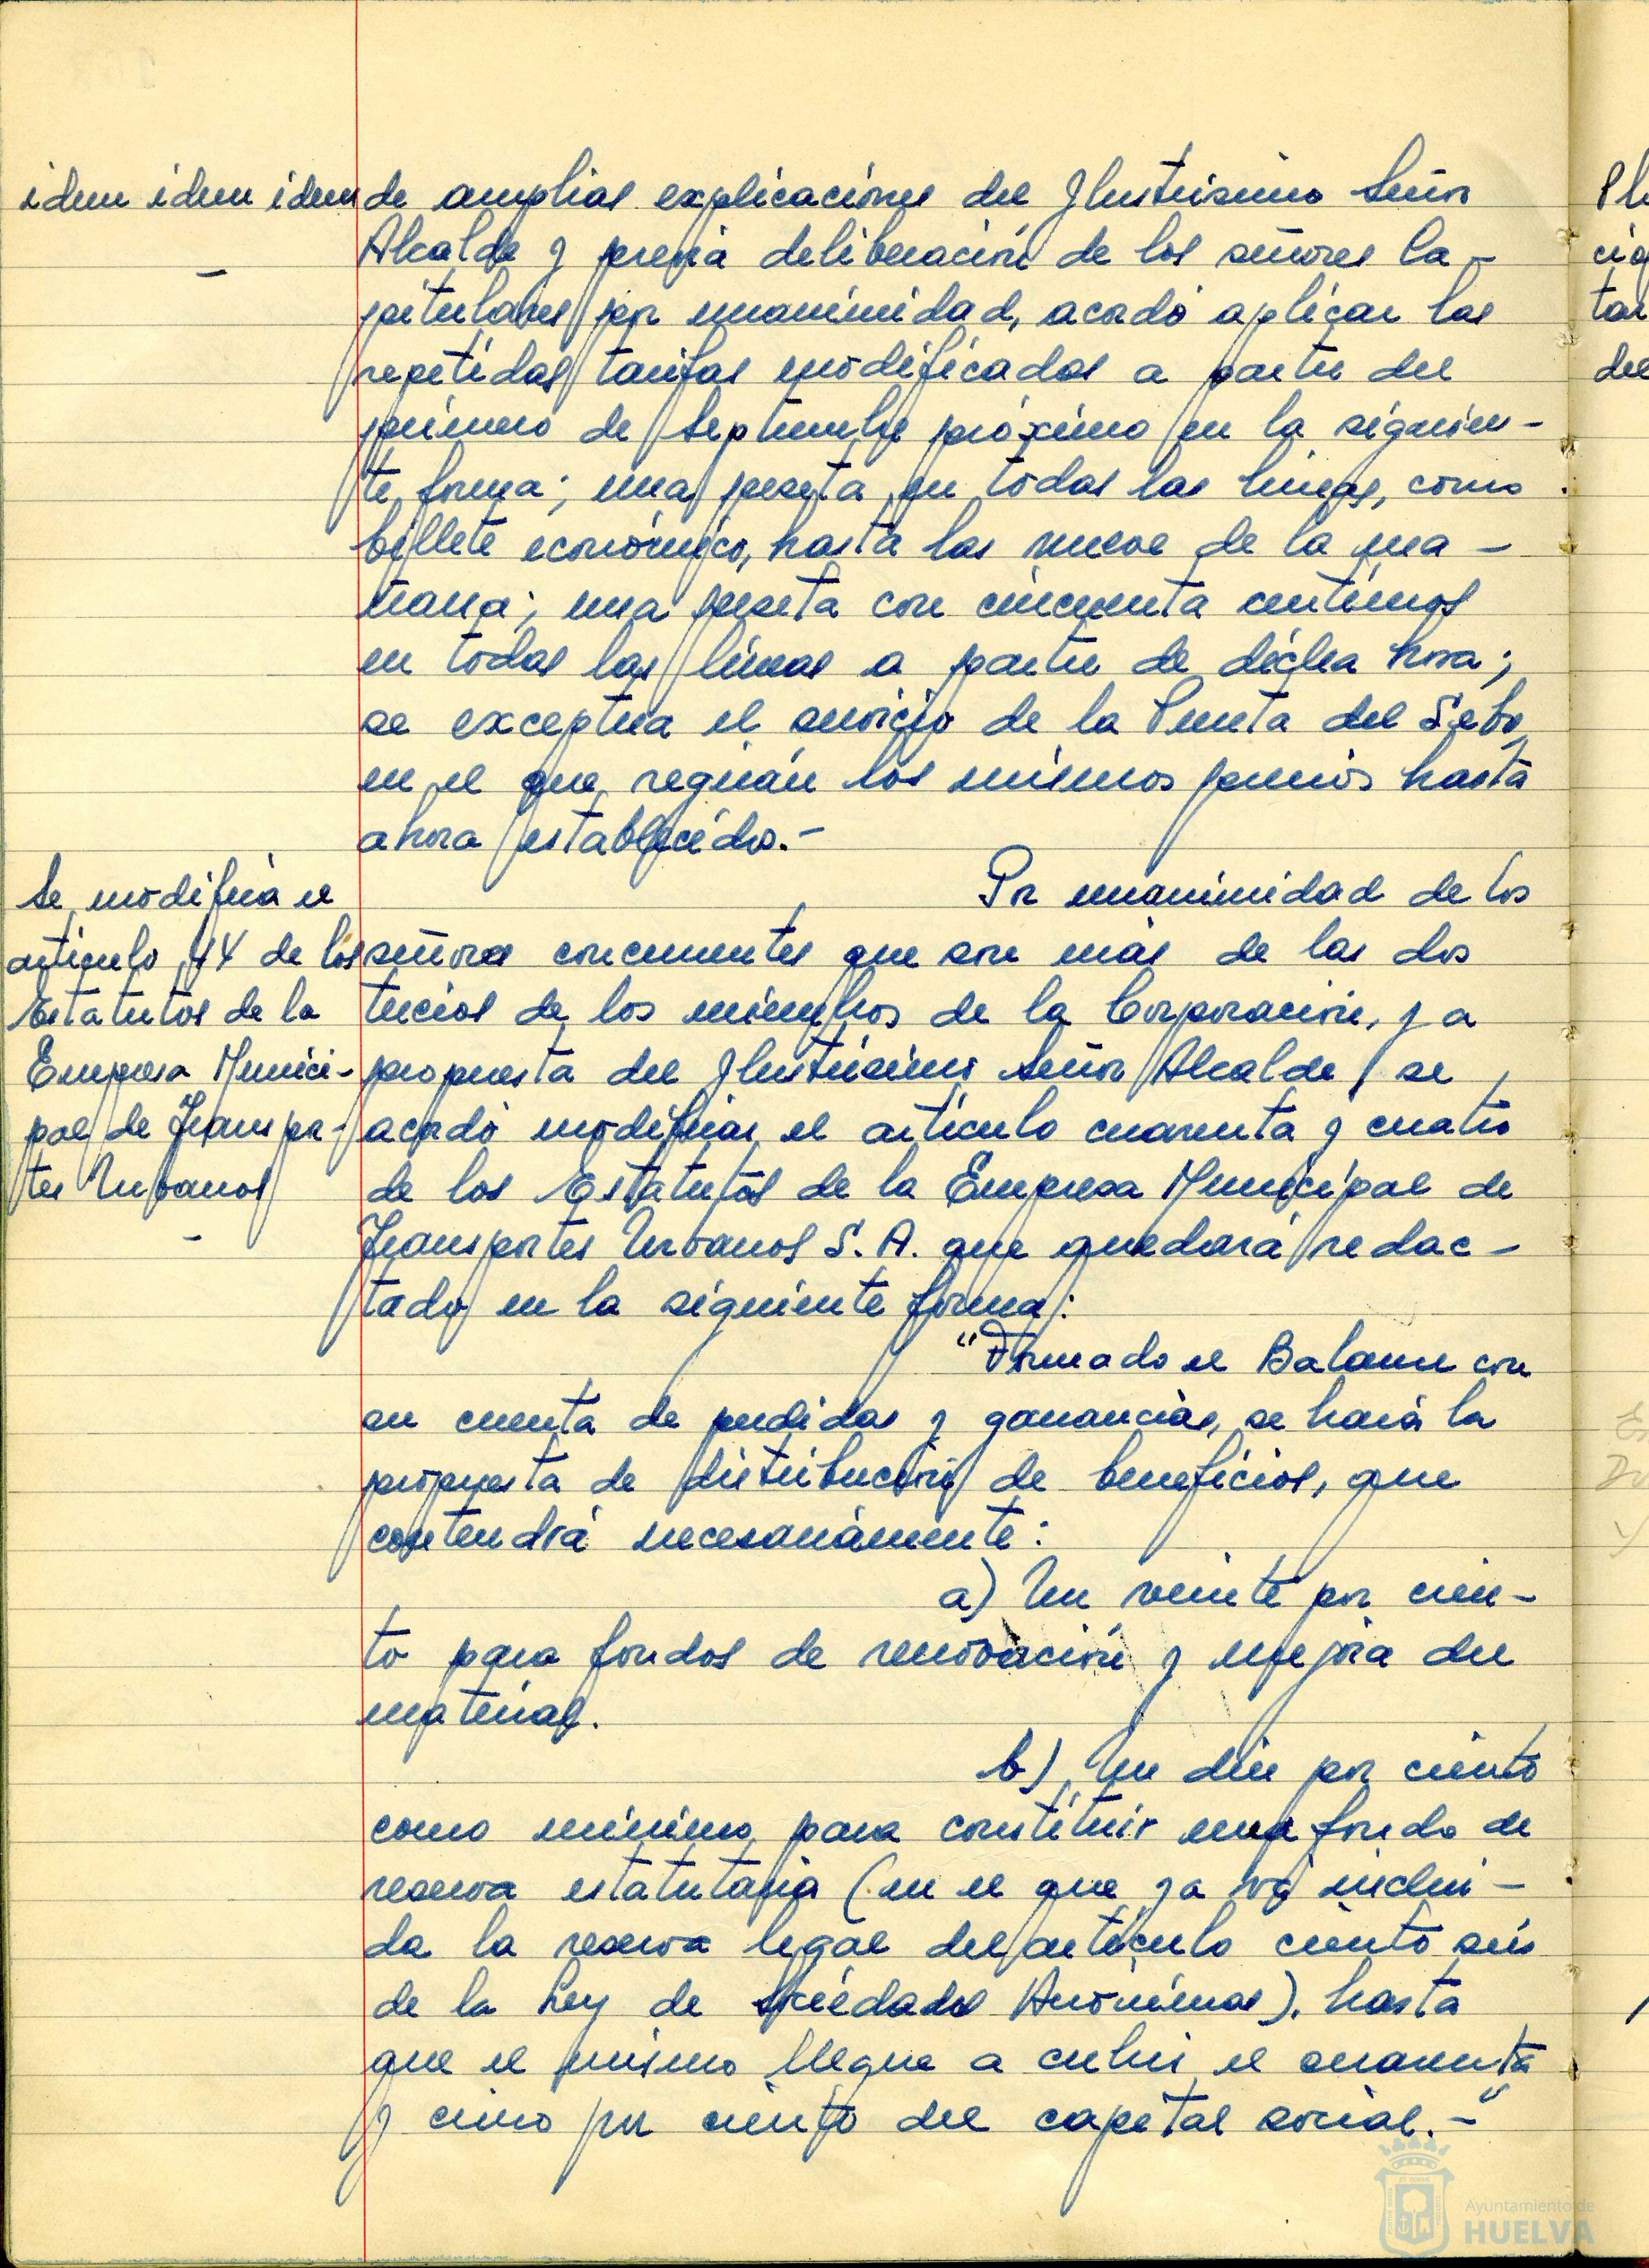 idem idem idem
-
de amplias explicaciones del Ilustrisimo Señor
Alcalde y previa deliberación de los señores Ca-
pitulares por unanimidad, acordó aplicar las
repetidas tarifas modificadas a partir del
primero de Septiembre próximo en la siguien-
te forma; una peseta en todas las lineas, como
billete económico, hasta las nueve de la ma-
ñana; una peseta con cincuenta centimos
en todas las líneas a partir de dicha hora;
se exceptua el servicio de la Punta del Sebo
en el que regirán los mismos precios hasta
ahora establecidos.-
Se modifica el
articulo 44 de los
Estatutos de la
Empresa Munici-
pal de Transpor-
tes Urbanos
-
Por unanimidad de los
señores concurrentes que son más de las dos
tercios de los miembros de la Corporación, y a
propuesta del Ilustrisimo Señor Alcalde, se
acordó modificar el artículo cuarenta y cuatro
de los Estatutos de la Empresa Municipal de
Transportes Urbanos S.A. que quedará redac-
tado en la siguiente forma:
"Formado el Balance con
su cuenta de perdidas y ganancias, se hará la
propuesta de distribución de beneficios, que
contendrá necesariamente:
a) Un veinte por cien-
to para fondos de renovación y mejora del
material.
b) Un diez por ciento
como minimo para constituir una fondo de
reserva estatutaria (en el que ya vá inclui-
da la reserva legal del artículo ciento seis
de la Ley de Sociedades Anónimas), hasta
que el mismo llegue a cubrir el cuarenta
y cinco por ciento del capital social.-"
Ayuntamiento de
HUELVA